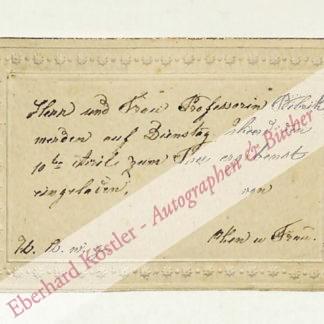 Herr und Frau Professorin
werden auf Dienstag Abend den
10ten April zum Thee ergebenst
eingeladen,
von
Oken u Frau.
Eberhard Köstler - Autographen & Bücher